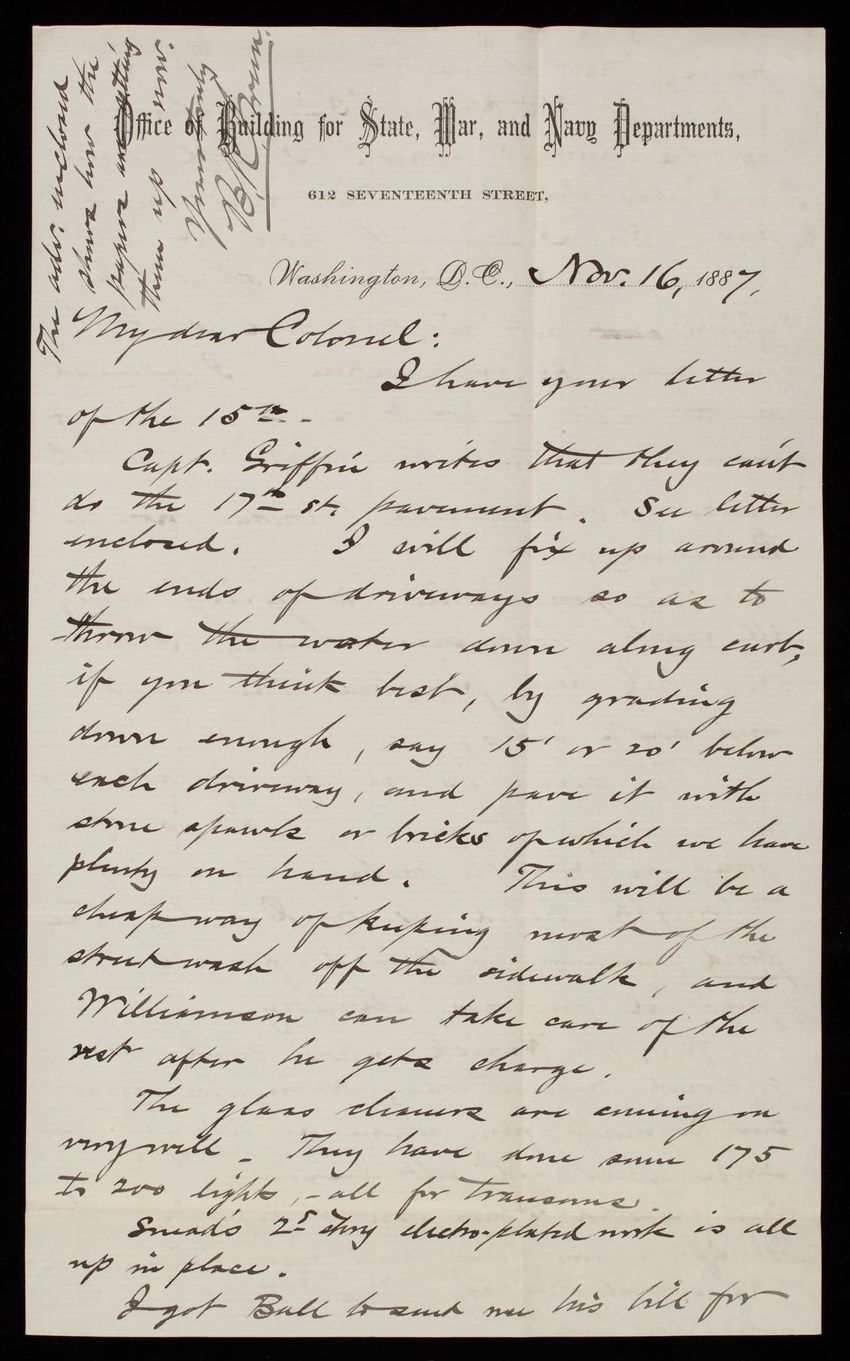 Office of Building for State, War, and Navy Departments,
612 SEVENTEENTH STREET,
Washington, D.C., Nov. 16, 1887.
My dear Colonel:
I have your letter
of the 15th. -
Capt. Griffin writes that they can't
do the 17th st. pavement. See letter
enclosed. I will fix up around
the ends of driveways so as to
throw the water down along curb,
if you think best, by grading
down enough, say 15' or 20' below
each driveway, and pave it with
stone spawls or bricks of which we have
plenty on hand. This will be a
cheap way of keeping most of the
street wash off the sidewalk, and
Williamson can take care of the
rest after he gets charge.
The glass cleaners are coming on
very well - They have done some 175
to 200 lights, - all for transoms.
Snead's 2d story electro-plated work is all
up in place.
I got Ball to send me his bill for
The adv. enclosed
shows how the
papers are
them up now.
Yours truly